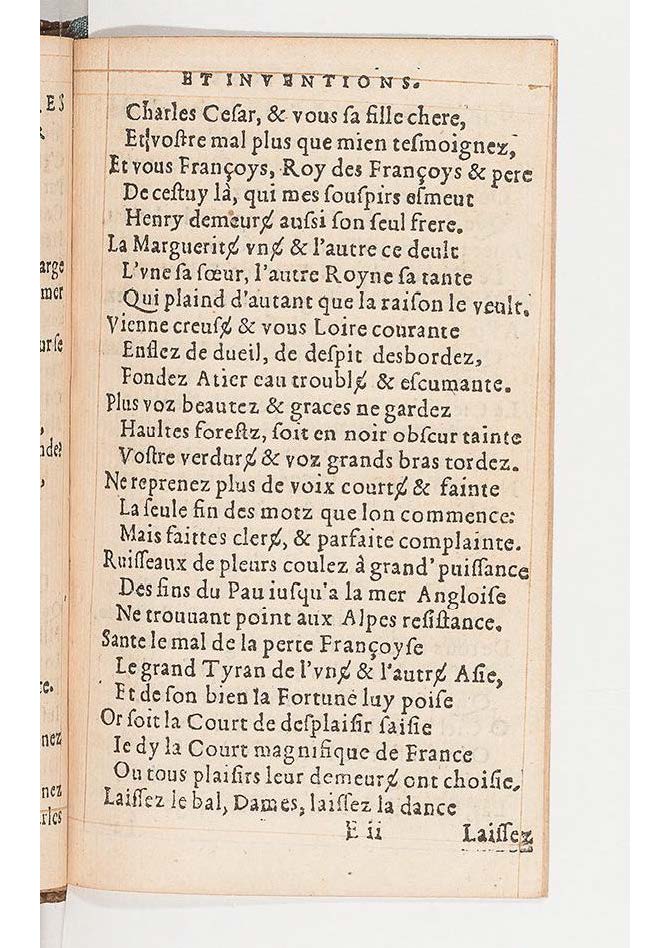 ES
arge
mer
urse
nde!
re.
nez
nez
rles
ET INVENTIONS.
Charles Cesar, & vous sa fille chere,
Et vostre mal plus que mien tesmoignez,
Et vous Françoys, Roy des Françoys & pere
De cestuy là, qui mes souspirs esmeut
Henry demeurɇ aussi son seul frere.
La Margueritɇ vnɇ & l'autre ce deult
L'vne sa sœur, l'autre Royne sa tante
Qui plaind d'autant que la raison le veult.
Vienne creusɇ & vous Loire courante
Enflez de dueil, de despit desbordez,
Fondez Atier eau troublɇ & escumante.
Plus voz beautez & graces ne gardez
Haultes forestz, soit en noir obscur tainte
Vostre verdurɇ & voz grands bras tordez.
Ne reprenez plus de voix courtɇ & fainte
La seule fin des motz que lon commence:
Mais faittes clerɇ, & parfaite complainte.
Ruisseaux de pleurs coulez à grand' puissance
Des fins du Pau iusqu'a la mer Angloise
Ne trouuant point aux Alpes resistance.
Sante le mal de la perte Françoyse
Le grand Tyran de l'vnɇ & l'autrɇ Asie,
Et de son bien la Fortune luy poise
Or soit la Court de desplaisir saisie
Ie dy la Court magnifique de France
Ou tous plaisirs leur demeurɇ ont choisie,
Laissez le bal, Dames, laissez la dance
E ii Laissez